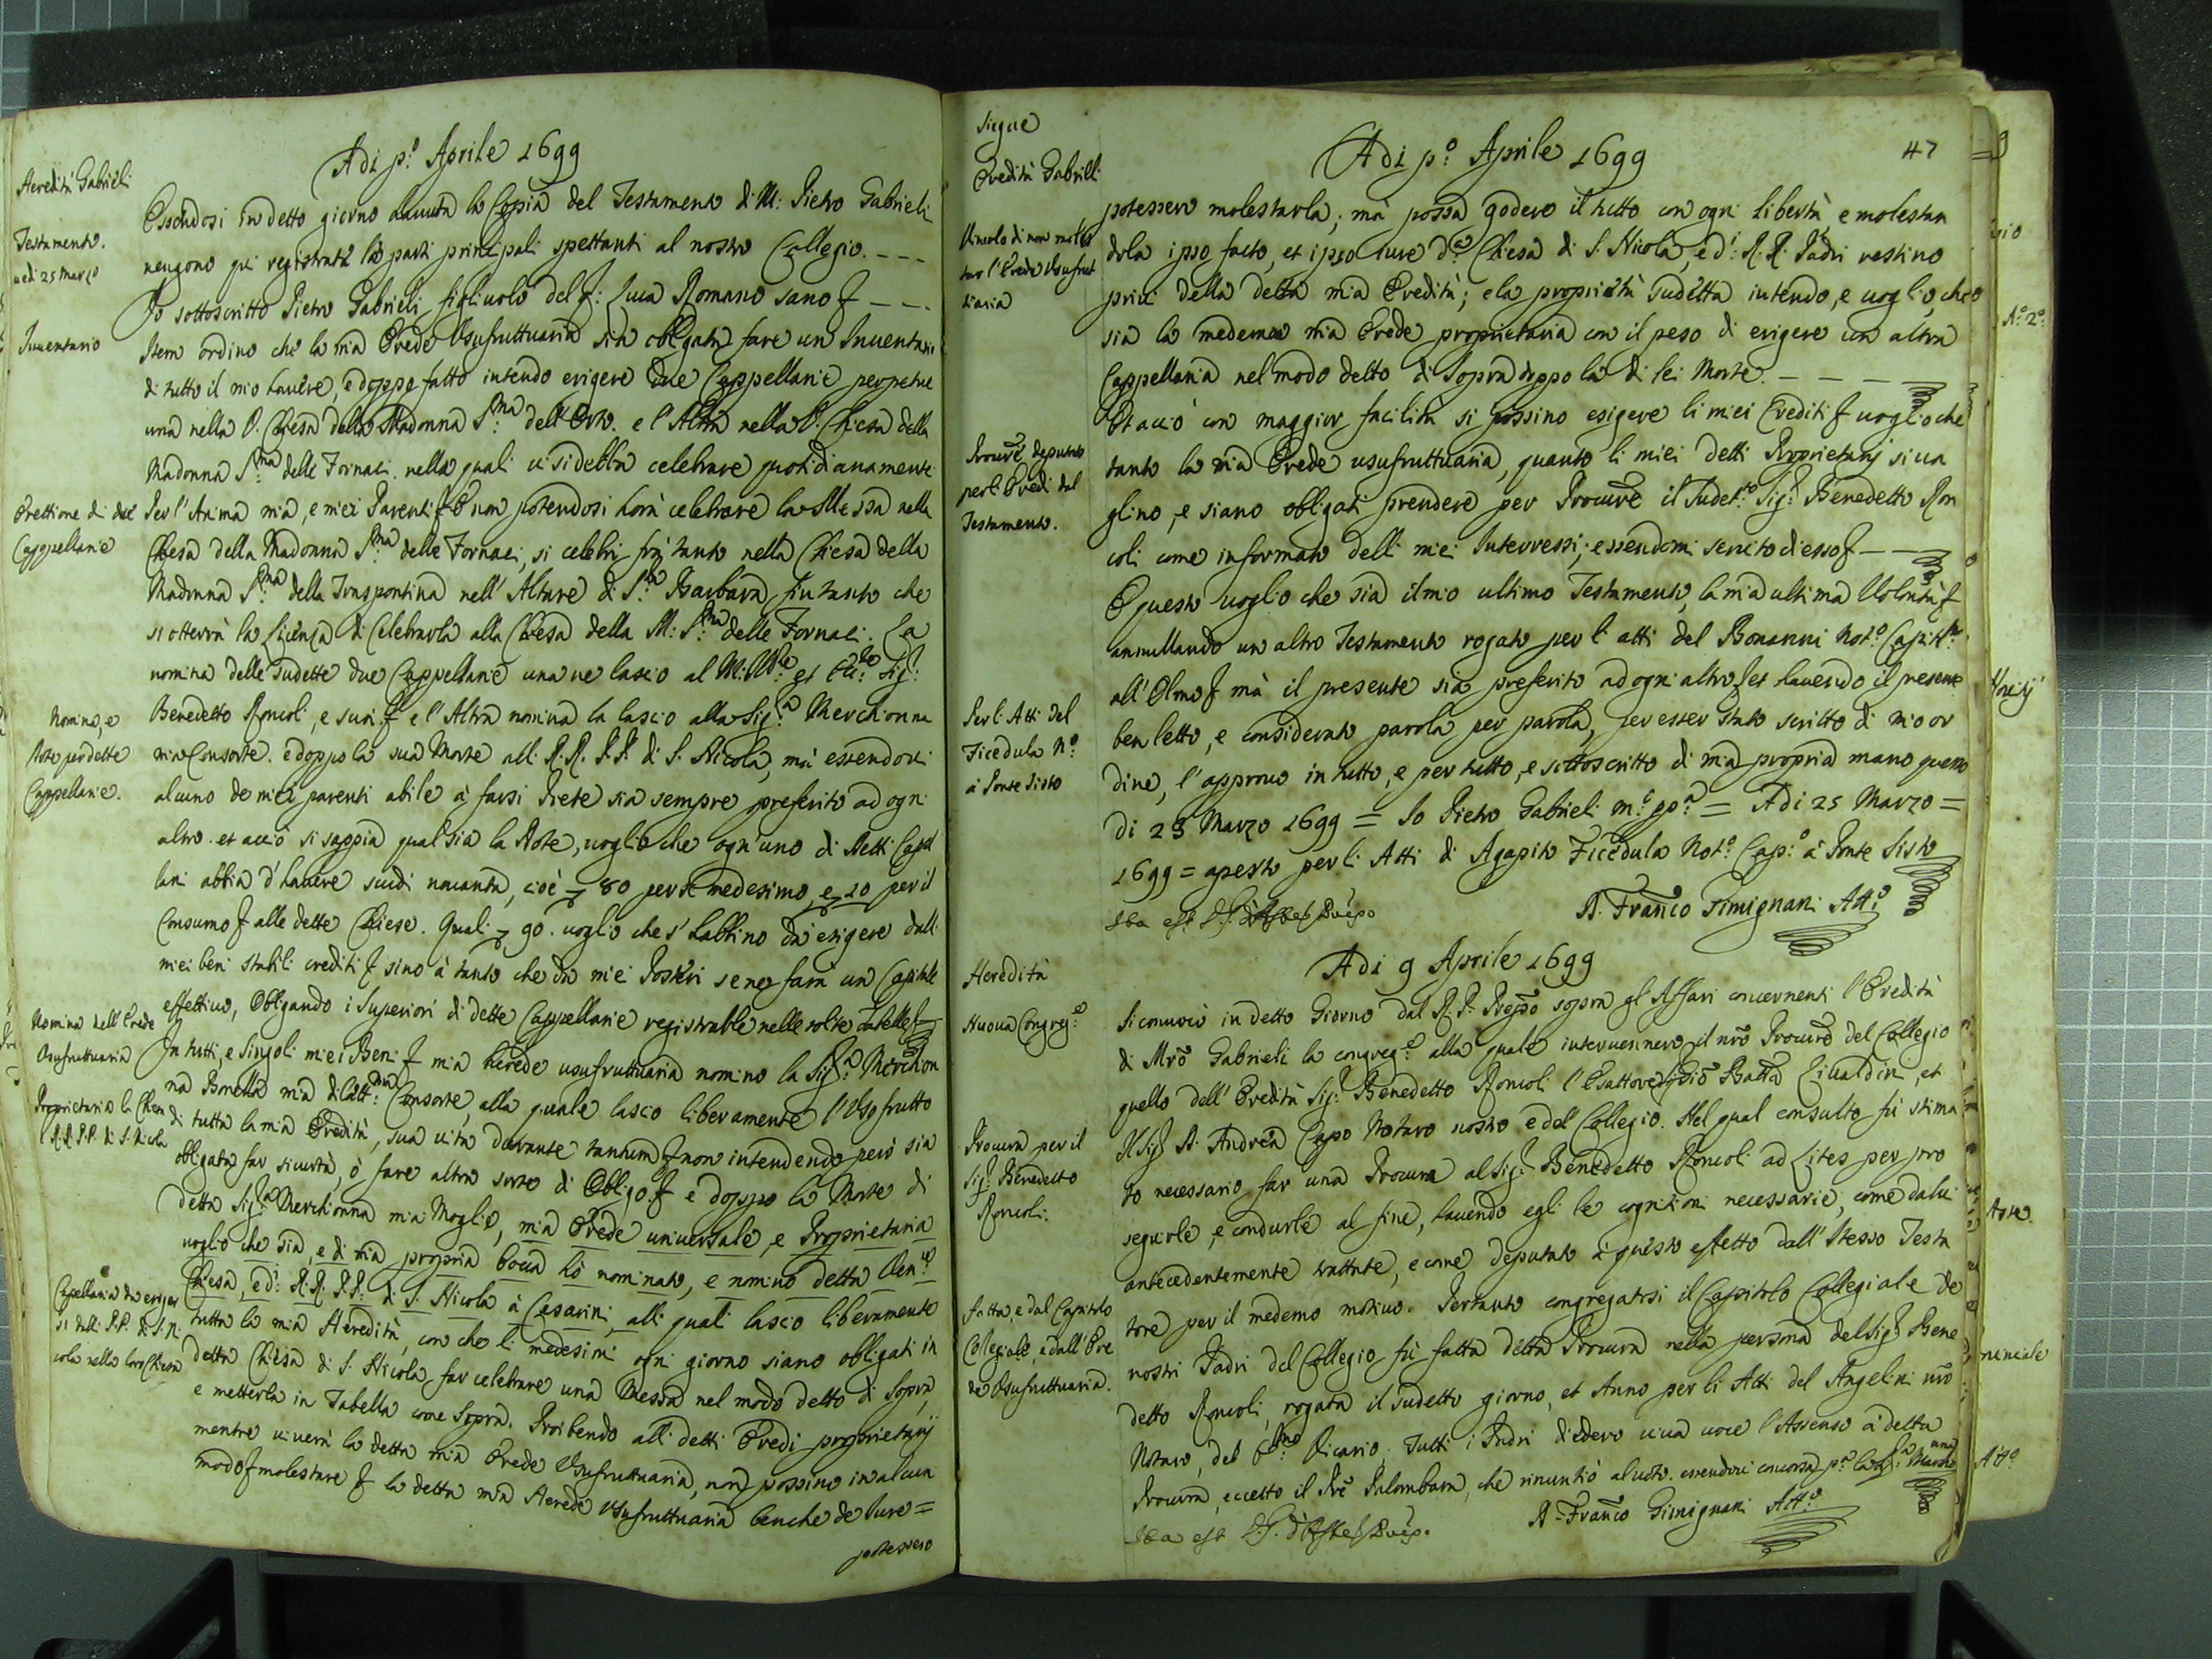 Adi p.º Aprile 1699
Heredità Gabrieli
Essendosi in detto giorno havuta la Copia del Testamento di M: Pietro Gabrieli
Testamento.
uengono qui registrate le parti principali spettanti al nostro Collegio. - - -
25 Março
Io sottoscritto Pietro Gabrieli figliuolo del q: Luca Romano sano - - -
Inuentario
Item ordino che la mia Erede Usufruttuaria sia obligata fare un Inuentario
di tutto il mio hauere, e doppo fatto intendo erigere due Cappellanie perpetue
una nella V. Chiesa della Madonna S.ma dell'Orto. e l'Altra nella V. Chiesa della
Madonna S.ma delle Fornaci. nelle quali ui si debba celebrare quotidianamente
Erettione di due
Cappellanie
Per l'Anima mia, e miei Parenti E non potendosi hora celebrare la Messa nella
Chiesa della Madonna S.ma delle Fornaci, si celebri frà tanto nella Chiesa della
Madonna S.ma della Traspontina nell'Altare di S.ta Barbara, fin tanto che
si otterrà la Licenza di Celebrarla alla Chiesa della M: S.ma delle Fornaci. La
nomina delle sudette due Cappellanie una ne lascio al M: Ill.re et Ecc. Sig.
Nomina, e
Dote per dette
Cappellanie.
Benedetto Roncoli, e suoi e l'Altra nomina la lascio alla Sig.a Merchionna
mia Consorte. e doppo la sua Morte alli R.R. P.P. di S. Nicola, mà essendoci
alcuno de miei parenti abile à farsi Prete sia sempre preferito ad ogni
altro. et acciò si sappia qual sia la Dote, uoglio che ogn'uno di detti Capel
lani abbia d'hauere scudi nouanta, cioè 80 per se medesimo, e 10 per il
Consumo alle dette Chiese. Quali 90. uoglio che s'habbino da esigere dalli
miei beni stabili crediti sino à tanto che da miei Posteri se ne farà un Capitale
effettiuo, Obligando i Superiori di dette Cappellanie registrarle nelle solite Tabelle
Nomina dell'Erede
Usufruttuaria
In tutti, e singoli miei Beni mia herede usufruttuaria nomino la Sig.a Merchion
na Bonella mia dilett.ma Consorte, alla quale lascio liberamente l'Usofrutto
Proprietaria la Chiesa
R.R. P.P. di S. Nicola
di tutta la mia Eredità, sua uita durante tantum non intendendo però sia
obligata far sicurtà, ò fare altra sorte di Obligo. e doppo la Morte di
detta Sig.a Merchionna mia Moglie, mia Erede uniuersale, e Proprietaria
uoglio che sia, e di mia propria bocca hò nominato, e nomino detta Ven.le
Chiesa, ed: R.R. P.P. di S. Nicola à Cesarini, alli quali lascio liberamente
Cappellania da eriger
si dalli P.P. di S. Ni
cola nella loro Chiesa
tutta la mia Heredità, con che li medesimi ogni giorno siano obligati in
detta Chiesa di S. Nicola far celebrare una Messa nel modo detto di sopra,
e metterla in Tabella come sopra. Proibendo alli detti Eredi proprietarij
mentre uiuerà la detta mia Erede Usufruttuaria, non possino in alcun
modo molestare la detta mia Herede Usufruttuaria benche de Iure =
potessero
Siegue
Eredità Gabrielli
Adi p.º Aprile 1699
47
potessero molestarla; mà possa godere il tutto con ogni libertà e molestan
Vincolo di non moles
tar l'Erede Usufrut
tuaria
dola ipso facto, et ipso iure d.a Chiesa di S. Nicola, e d.i R.R. Padri restino
priui della detta mia Eredità; e la proprietà sudetta intendo, e uoglio, che
sia la medema mia Erede proprietaria con il peso di erigere un altra
Cappellania nel modo detto di sopra doppo la di lei Morte. - - -
Et acciò con maggior facilità si possino esigere li miei Crediti uoglio che
Procur.re deputato
per l'Eredi dal
Testamento.
tanto la mia Erede usufruttuaria, quanto li miei detti Proprietarij si ua
glino, e siano obligati prendere per Procur.re il sudet.to Sig. Benedetto Ron
coli come informato delli miei Interressi; essendomi seruito di esso - -
E questo uoglio che sia il mio ultimo Testamento, la mia ultima Volontà
annullando un altro Testamento rogato per l'atti del Bonanni Not.º Capit.no
all'Olmo mà il presente sia preferito ad ogni altro et hauendo il presente
Per li Atti del
Ficedula N.º
à Ponte Sisto
ben letto, e considerato parola per parola, per esser stato scritto di mio or
dine, l'approuo in tutto, e per tutto, e sottoscritto di mia propria mano questo
di 23 Marzo 1699 = Io Pietro Gabrieli m.º pp.a = Adi 25 Marzo =
1699 = aperto per li Atti di Agapito Ficedula Not.º Cap.º à Ponte Sisto
D. Fran.co Gimignani Att.º
Ita est
Adi 9 Aprile 1699
Heredità
Nuova Congreg.e
Si conuocò in detto Giorno dal R. P. Prep̃o sopra gl'Affari concernenti l'Eredità
di Mr̃o Gabrieli la congreg.e alla quale interuennero il nr̃o Procur.re del Collegio
quello dell'Eredità Sig. Benedetto Roncoli l'Esattore Gio Batta Liualdini, et
Il Sig. D. Andrea Capo Notaro nostro e del Collegio. Nel qual consulto fù stima
Procura per il
Sig. Benedetto
Roncoli.
to necessario far una Procura al Sig. Benedetto Roncoli ad Lites per pro
seguirle, e condurle al fine, hauendo egli le cognitioni necessarie, come da lui
antecedentemente trattate, e come deputato à questo effetto dall'Istesso Testa
tore per il medemo motiuo. Pertanto congregatosi il Capitolo Collegiale de
fatta, e dal Capitolo
Collegiale, e dall'Ere
de Usufruttuaria.
nostri Padri del Collegio fù fatta detta Procura nella persona del Sig. Bene
detto Roncoli, rogata il sudetto giorno, et Anno per li Atti del Angelini nr̃o
Notaro, del E.mo Vicario. Tutti i Padri diedero uiua uoce l'Assenso à detta
Procura, eccetto il Pr̃e Palombara, che rinuntiò al uoto. essendoci concorsa
D. Fran.co Gimignani Att.º
Ita est